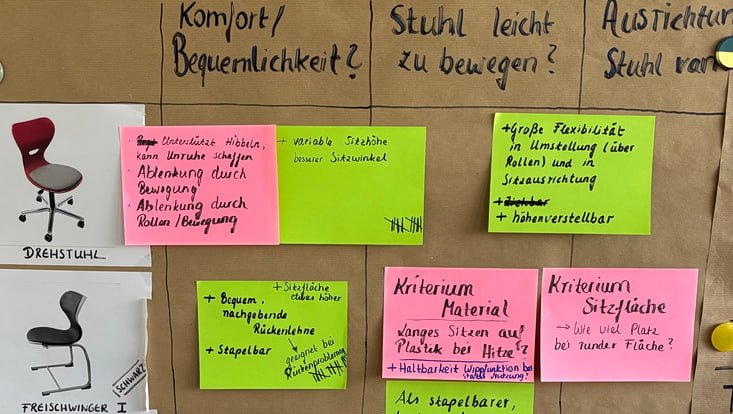 Komfort/
Bequemlichkeit?
Stuhl leicht
zu bewegen?
Ausrichtun
Stuhl vari
DREHSTUHL
Unterstützt Hibbeln,
kann Unruhe schaffen
· Ablenkung durch
Bewegung
· Ablenkung durch
Rollen/Bewegung
+ variable Sitzhöhe
besserer Sitzwinkel
+ Große Flexibilität
in Umstellung (über
Rollen) und in
Sitzausrichtung
+ höhenverstellbar
FREISCHWINGER I
SCHWARZ
+ Sitzfläche
etwas höher
+ Bequem,
nachgebende
Rückenlehne
+ Stapelbar
geeignet bei
Rückenproblemen
Kriterium
Material
Langes Sitzen auf
Plastik bei Hitze?
+ Haltbarkeit Wippfunktion bei
starker Nutzung?
Kriterium
Sitzfläche
→ Wie viel Platz
bei runder Fläche?
Als stapelbarer,